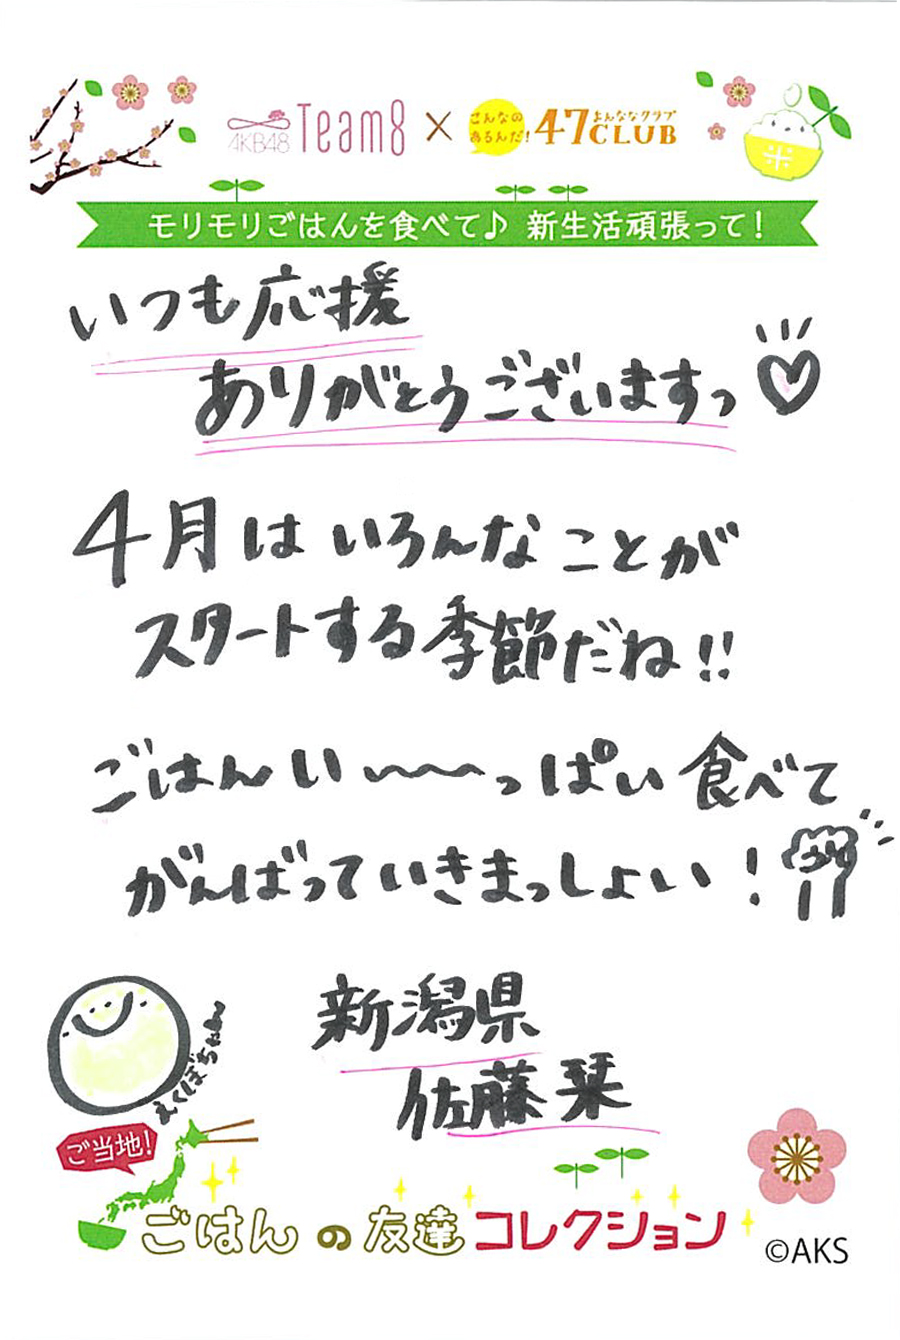 AKB48 Team8 × こんなの あるんだ! 47CLUB よんななクラブ
米
モリモリごはんを食べて♪ 新生活頑張って!
いつも応援
ありがとうございますっ
4月はいろんなことが
スタートする季節だね!!
ごはんい〜〜〜っぱい食べて
がんばっていきまっしょい!
えくぼちゃん
新潟県
佐藤栞
ご当地!
ごはんの友達コレクション
©AKS